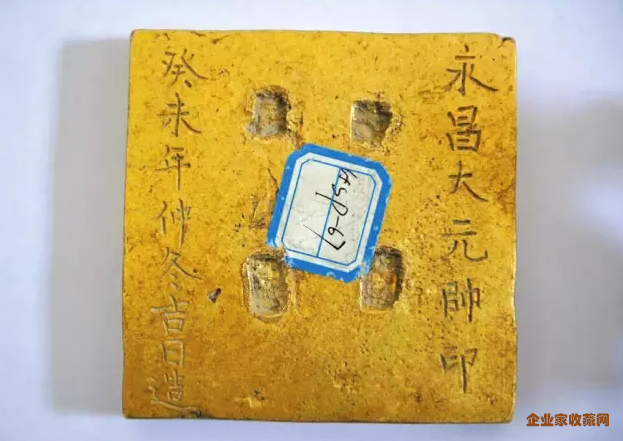 永昌大元帅印
癸未年仲冬吉日造
企业家收藏网